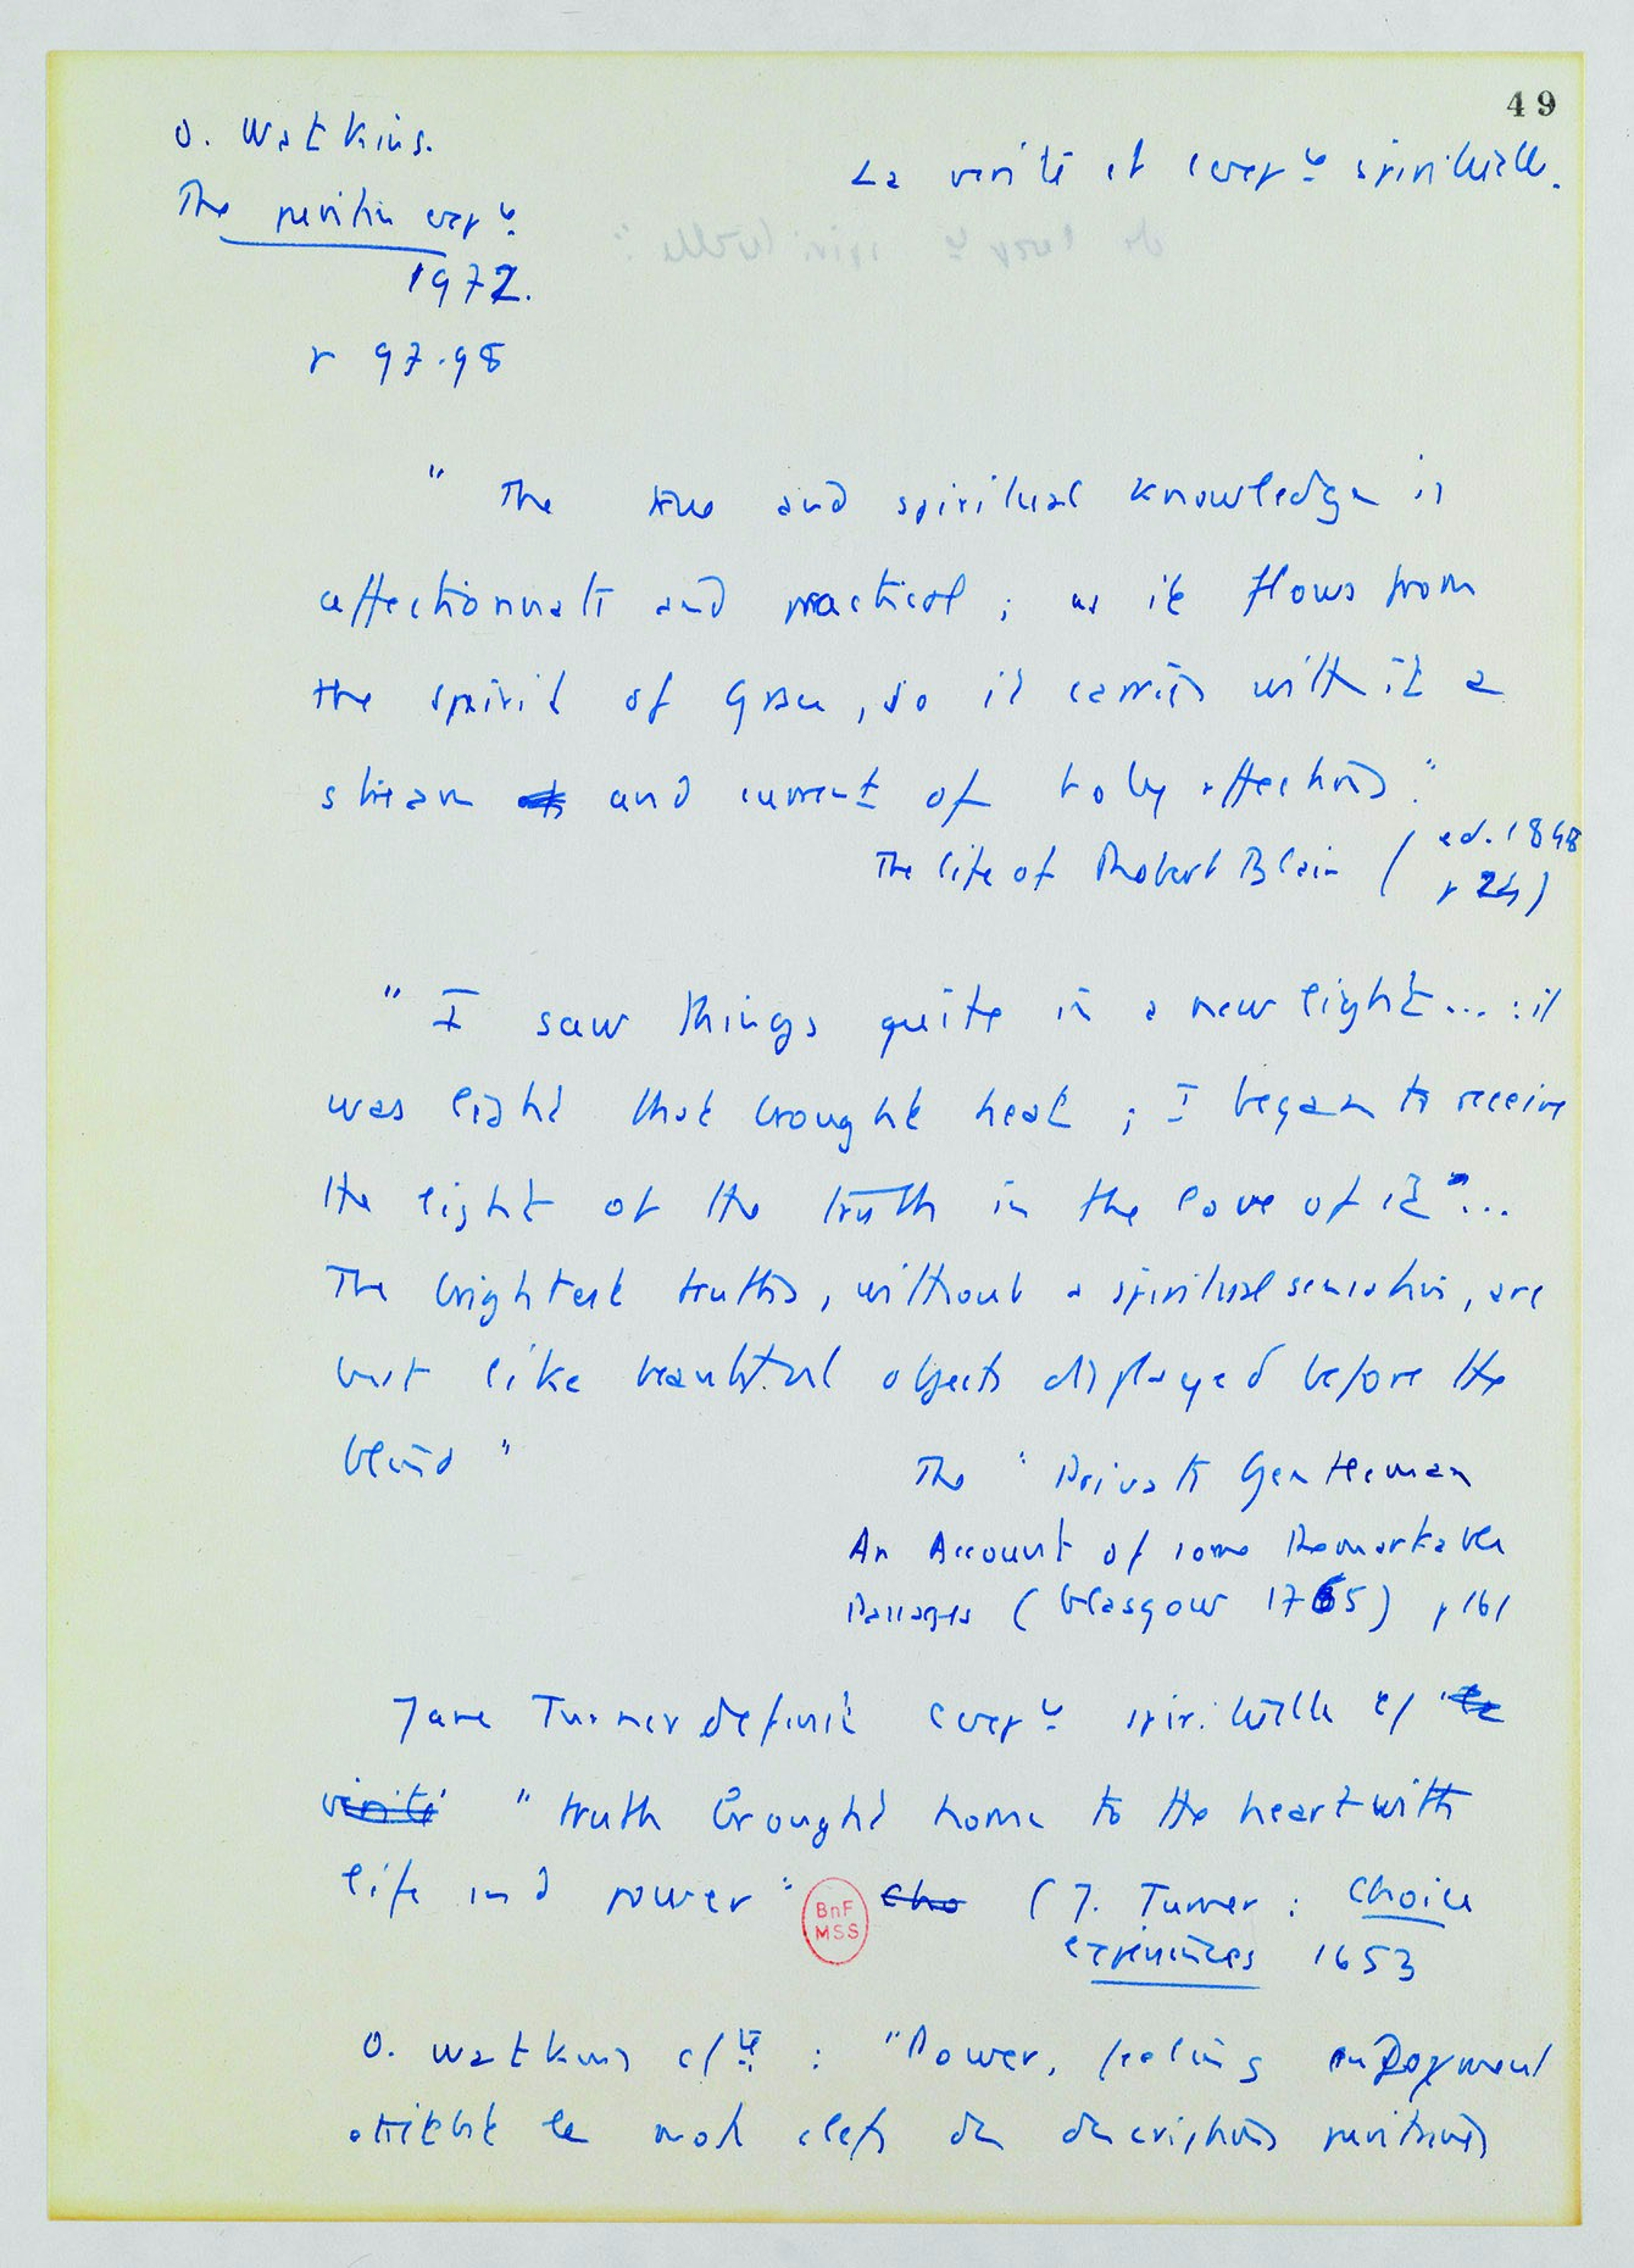 49
O. Watkins.
La vérité et l'expce spirituelle.
The puritan expce.
1972.
p 97.98
" The true and spiritual knowledge is
affectionnate and practical ; as it flows from
the spirit of Grace, so it carries with it a
stream and current of holy affections".
The life of Robert Blair ( ed. 1848
p 24)
" I saw things quite in a new light... : it
was light that brought heat ; I began to receive
the light of the truth in the love of it"...
The brightest truths, without a spiritual sensation, are
but like beautiful objects displayed before the
blind "
The " Private Gentleman
An Account of some Remarkable
Passages ( Glasgow 1765) p 161
Jane Turner définit l'expce spirituelle c/ la
vérité " truth brought home to the heart with
life and power " Cho ( J. Turner : Choice
experiences 1653
O. Watkins : "Power, feeling enjoyment
étaient les mots clefs des descriptions puritaines